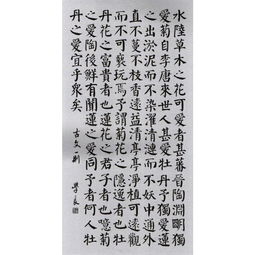 水陸草木之花可愛者甚蕃晉陶淵明獨
愛菊自李唐來世人甚愛牡丹予獨愛蓮
之出淤泥而不染濯清漣而不妖中通外
直不蔓不枝香遠益清亭亭淨植可遠觀
而不可褻玩焉予謂菊花之隱逸者也牡
丹花之富貴者也蓮花之君子者也噫菊
之愛陶後鮮有聞蓮之愛同予者何人牡
丹之愛宜乎衆矣
古文一則
學良